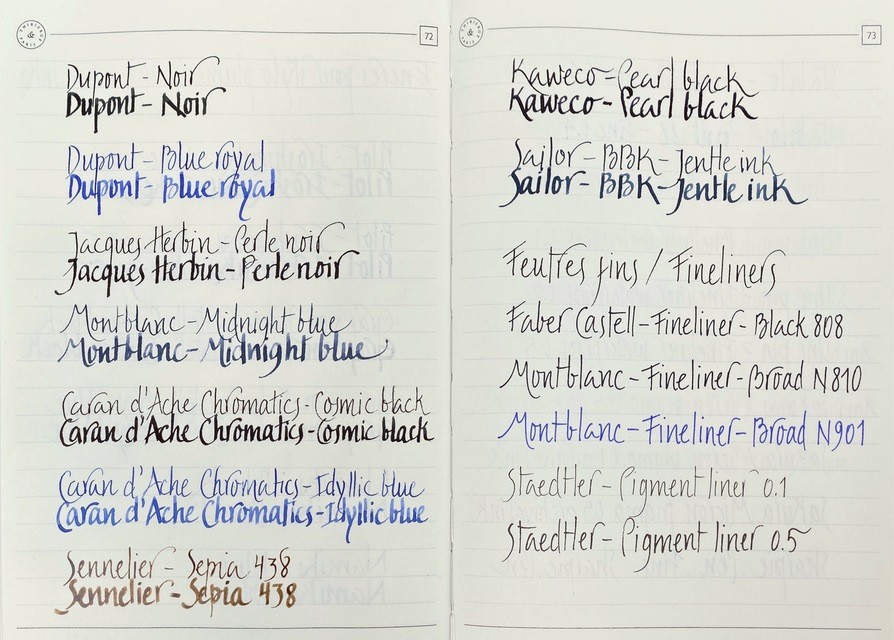 72
Dupont - Noir
Dupont - Noir
Dupont - Blue royal
Dupont - Blue royal
Jacques Herbin - Perle noir
Jacques Herbin - Perle noir
Montblanc - Midnight blue
Montblanc - Midnight blue
Caran d'Ache Chromatics - Cosmic black
Caran d'Ache Chromatics - Cosmic black
Caran d'Ache Chromatics - Idyllic blue
Caran d'Ache Chromatics - Idyllic blue
Sennelier - Sepia 438
Sennelier - Sepia 438
73
Kaweco - Pearl black
Kaweco - Pearl black
Sailor - BBK - Jentle ink
Sailor - BBK - Jentle ink
Feutres fins / Fineliners
Faber Castell - Fineliner - Black 808
Montblanc - Fineliner - Broad N810
Montblanc - Fineliner - Broad N901
Staedtler - Pigment liner 0.1
Staedtler - Pigment liner 0.5